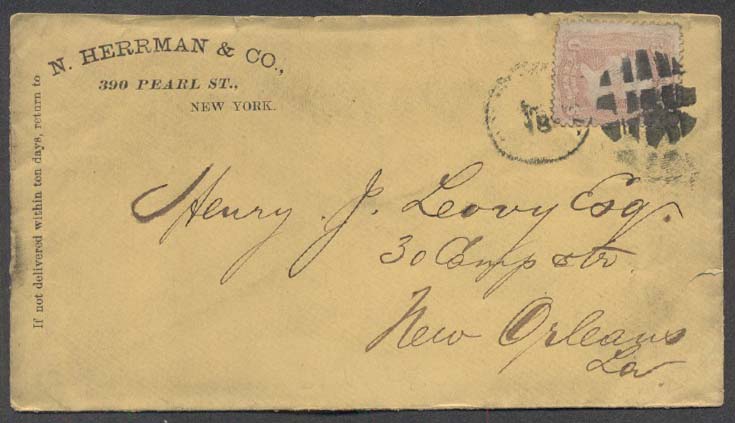 N. HERRMAN & CO.,
390 PEARL ST.,
NEW YORK.
If not delivered within ten days, return to
18
Henry. J. Leovy Esq.
30 Camp str.
New Orleans
La.